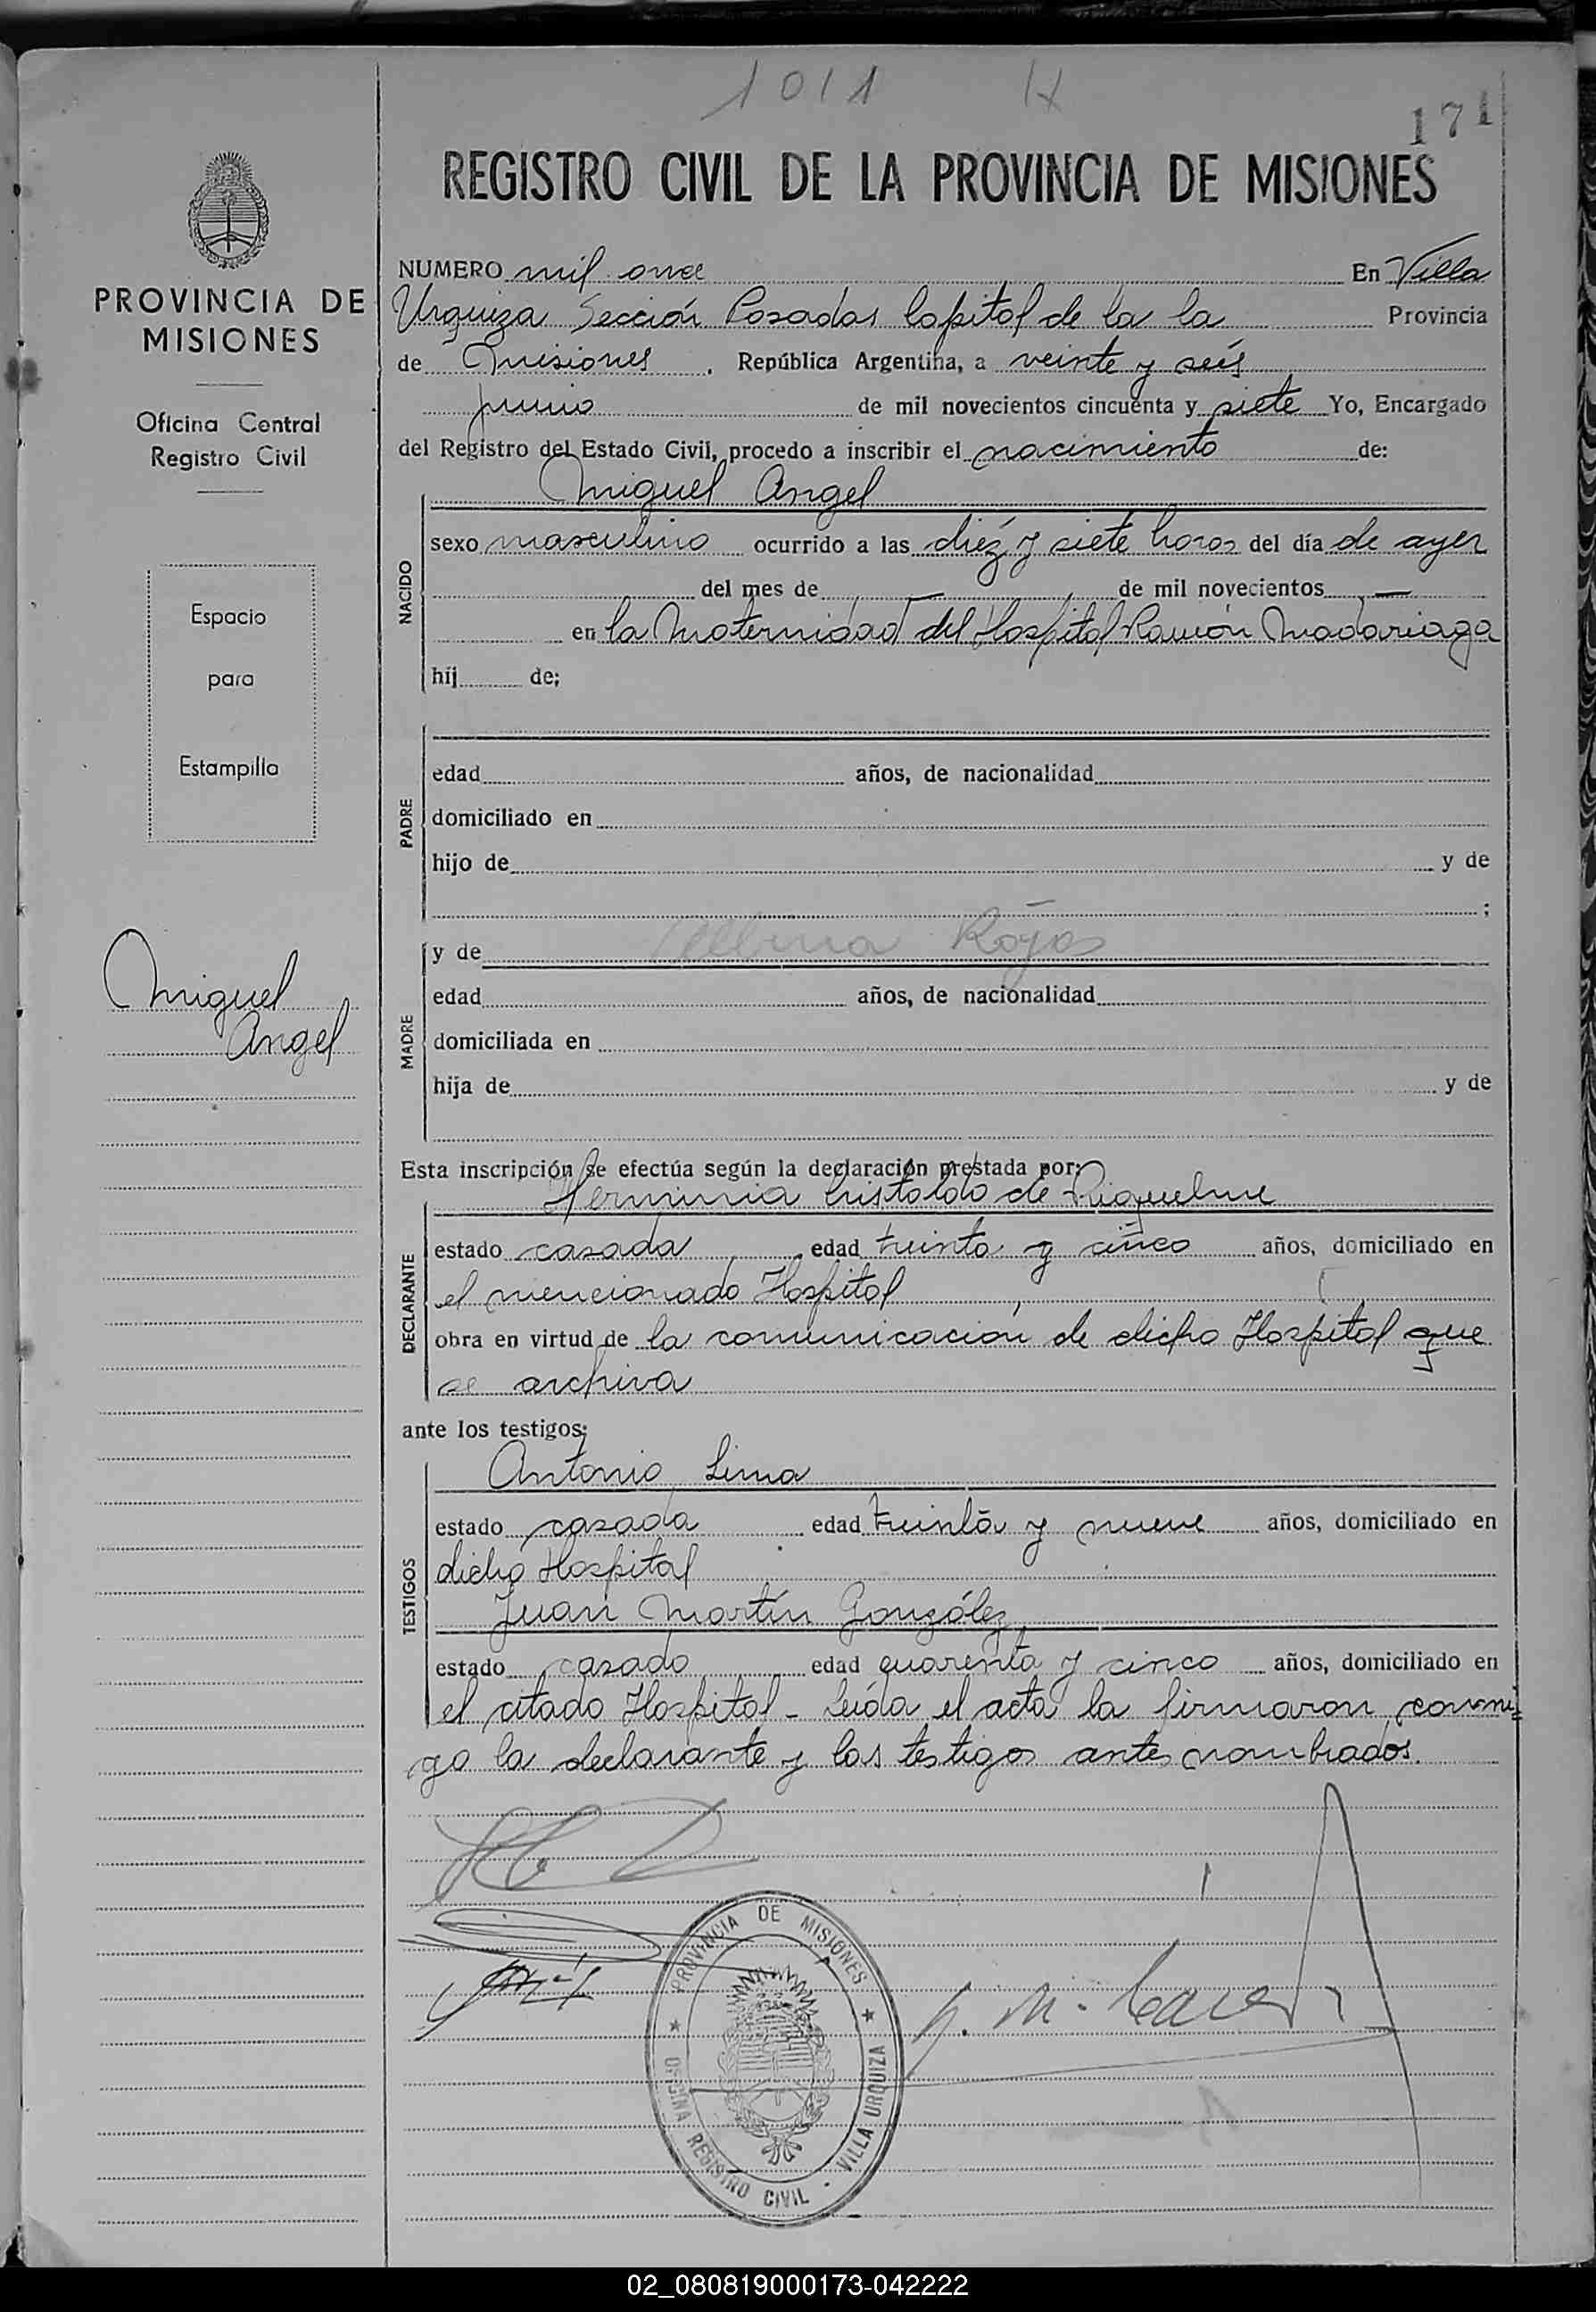 1011 H
171
REGISTRO CIVIL DE LA PROVINCIA DE MISIONES
PROVINCIA DE
MISIONES
Oficina Central
Registro Civil
Espacio
para
Estampilla
Miguel
Angel
NUMERO mil once En Villa
Urquiza Sección Posadas Capital de la la Provincia
de Misiones, República Argentina, a veinte y seis
junio de mil novecientos cincuenta y siete Yo, Encargado
del Registro del Estado Civil, procedo a inscribir el nacimiento de:
Miguel Angel
NACIDO
sexo masculino ocurrido a las diéz y siete horas del día de ayer
del mes de — de mil novecientos —
en la Maternidad del Hospital Ramón Madariaga
hij de;
PADRE
edad años, de nacionalidad
domiciliado en
hijo de y de
;
MADRE
y de Rojas
edad años, de nacionalidad
domiciliada en
hija de y de
Esta inscripción se efectúa según la declaración prestada por:
Herminia Cristaldo de Riquelme
DECLARANTE
estado casada edad treinta y cinco años, domiciliado en
el mencionado Hospital
obra en virtud de la comunicación de dicho Hospital que
se archiva
ante los testigos:
TESTIGOS
Antonio Lima
estado casada edad treinta y nueve años, domiciliado en
dicho Hospital
Juan Martín González
estado casado edad cuarenta y cinco años, domiciliado en
el citado Hospital - Leída el acta la firmaron conmi=
go la declarante y los testigos antes nombrados.
PROVINCIA DE MISIONES
OFICINA REGISTRO CIVIL - VILLA URQUIZA
02_080819000173-042222